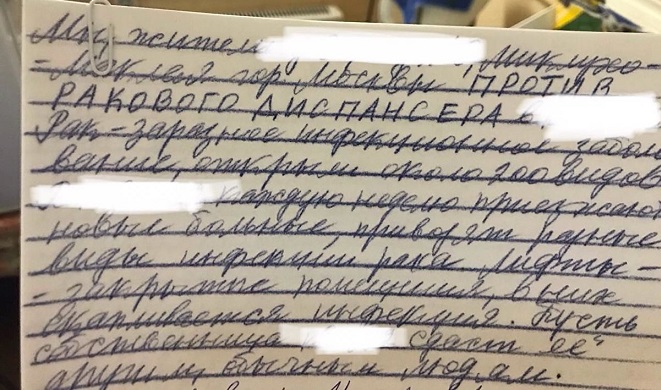 Мы жители , Миклухо-
-Маклая гор Москвы ПРОТИВ
РАКОВОГО ДИСПАНСЕРА в
Рак-заразное инфекционное забол
вание, открыли около 200 видов
каждую неделю приезжают
новые больные привозят разные
виды инфекций рака Лифты-
-закрытые помещения, в них
скапливается инфекция. Пусть
собственница сдаст "ее"
другим, обычным людям.